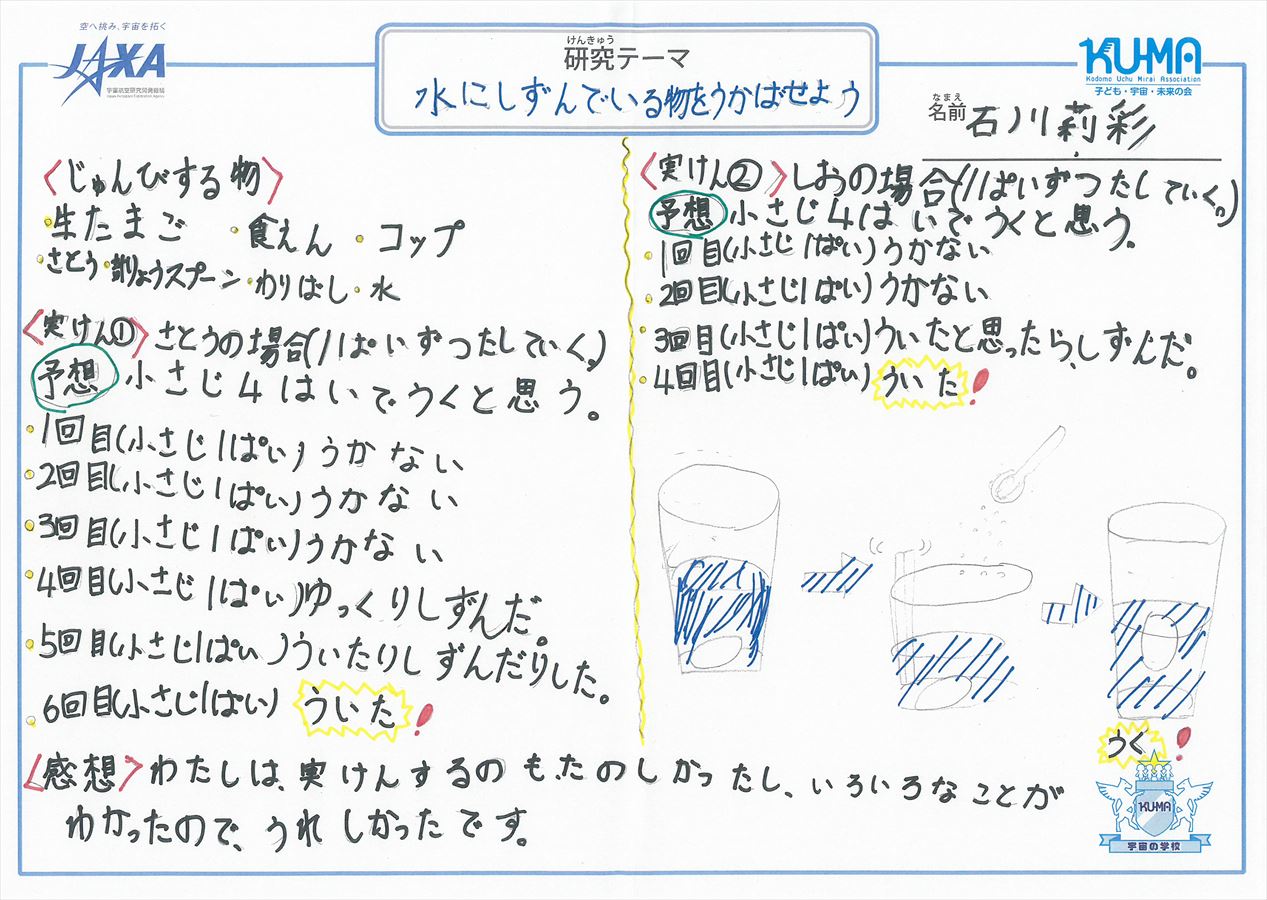 空へ挑み、宇宙を拓く
JAXA
宇宙航空研究開発機構
Japan Aerospace Exploration Agency
けんきゅう
研究テーマ
水にしずんでいる物をうかばせよう
KU-MA
Kodomo Uchu Mirai Association
子ども・宇宙・未来の会
なまえ
名前 石川莉彩
〈じゅんびする物〉
・生たまご ・食えん ・コップ
・さとう・計りょうスプーン・わりばし・水
〈実けん①〉さとうの場合(1ぱいずつたしていく。)
予想 小さじ4はいでうくと思う。
・1回目(小さじ1ぱい)うかない
・2回目(小さじ1ぱい)うかない
・3回目(小さじ1ぱい)うかない
・4回目(小さじ1ぱい)ゆっくりしずんだ。
・5回目(小さじ1ぱい)ういたりしずんだりした。
・6回目(小さじ1ぱい) ういた!
〈実けん②〉しおの場合(1ぱいずつたしていく。)
予想 小さじ4はいでうくと思う。
・1回目(小さじ1ぱい)うかない
・2回目(小さじ1ぱい)うかない
・3回目(小さじ1ぱい)ういたと思ったら、しずんだ。
・4回目(小さじ1ぱい) ういた!
うく!
〈感想〉わたしは、実けんするのも、たのしかったし、いろいろなことが
わかったので、うれしかったです。
KUMA
宇宙の学校